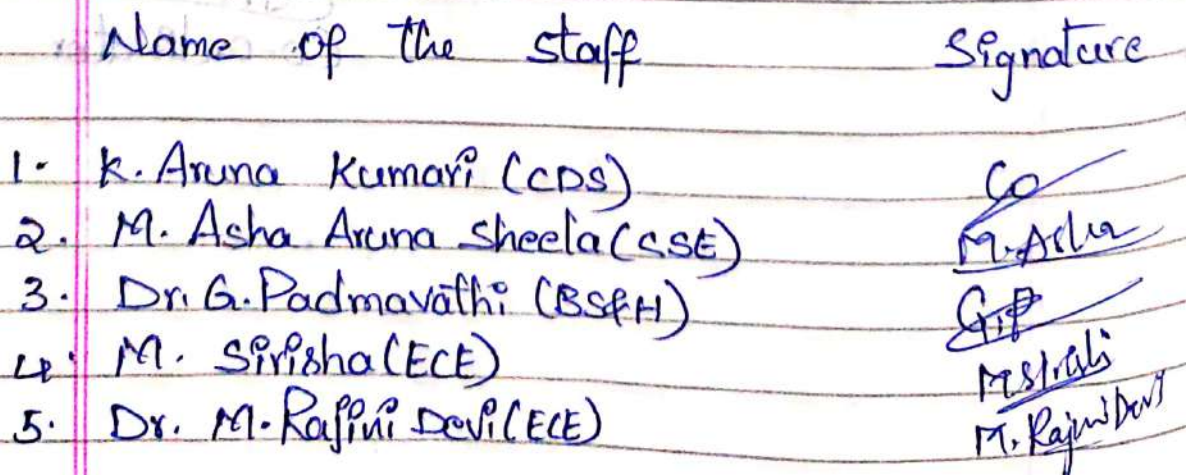 Name of the staff Signature
1. K. Aruna Kumari (CDS)
2. M. Asha Aruna Sheela (CSE) M. Asha
3. Dr. G. Padmavathi (BS&H) G.P
4. M. Sirisha (ECE)
5. Dr. M. Rajini Devi (ECE) M. Rajini Devi